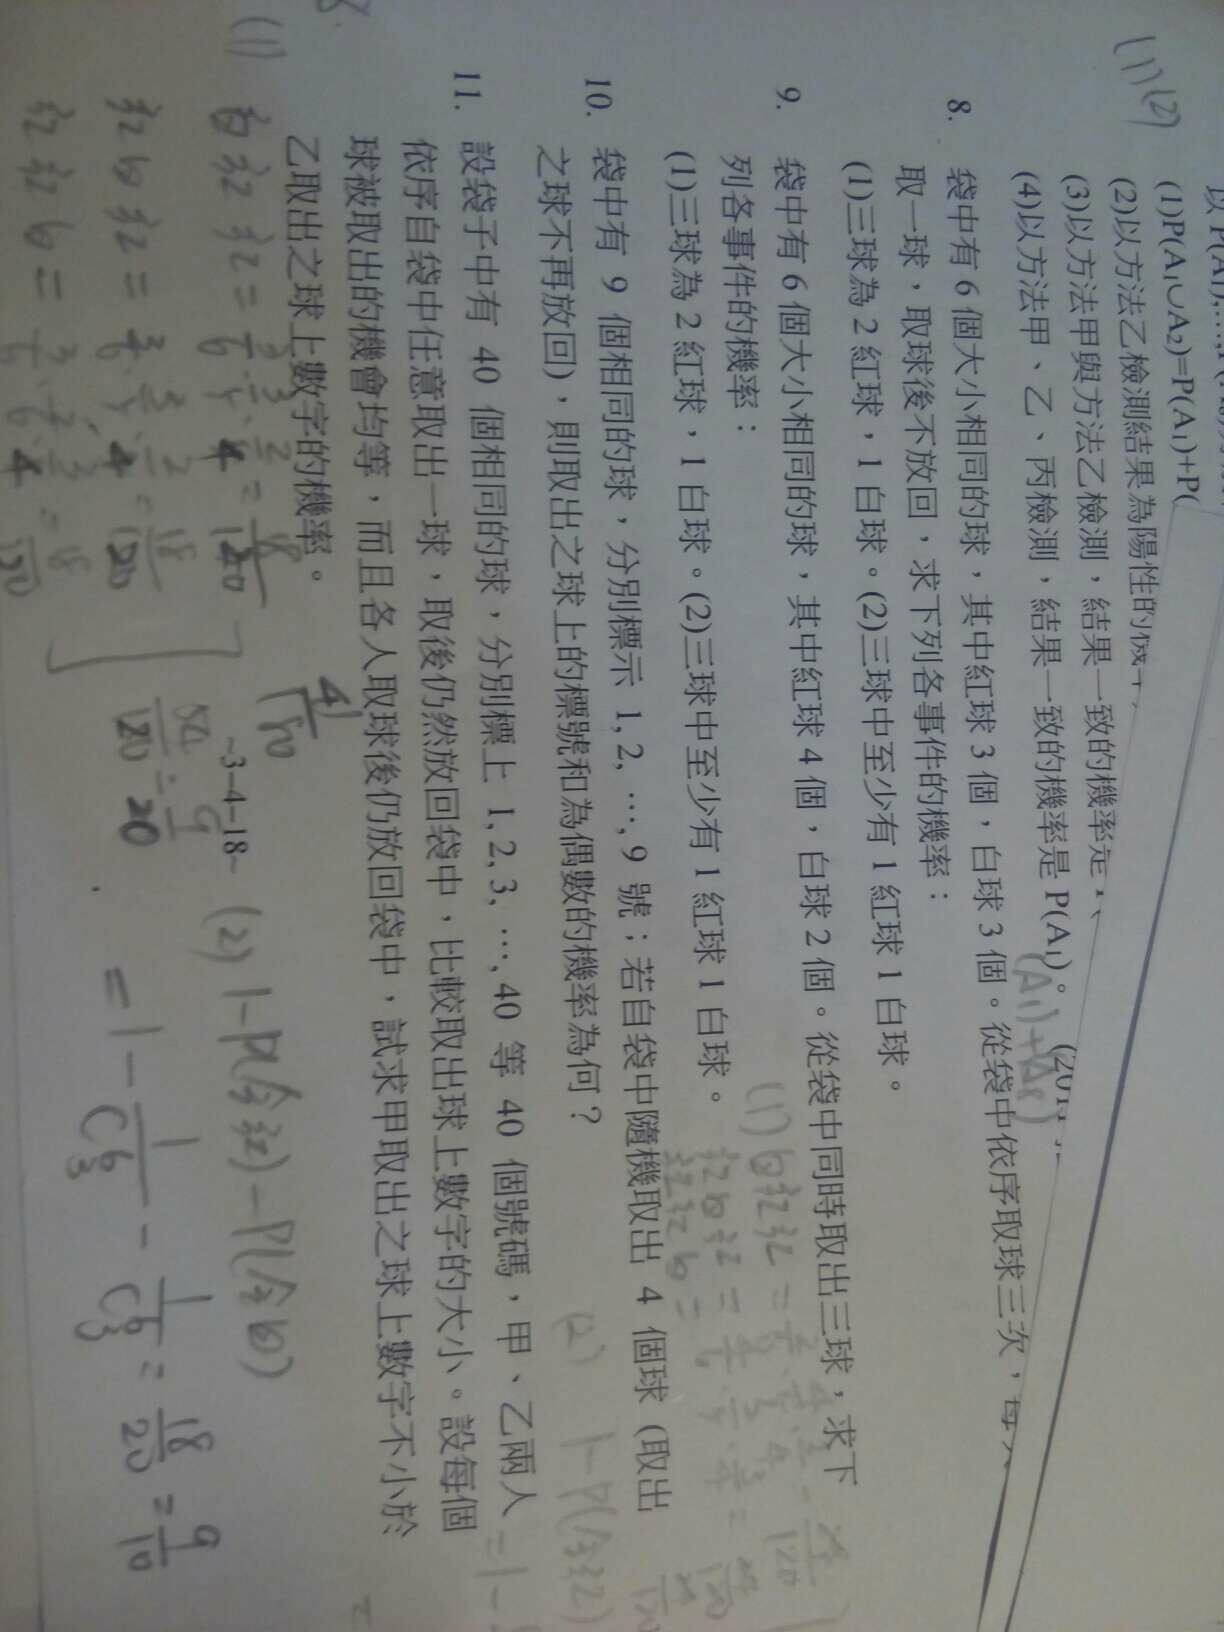 (1)P(A₁∪A₂)=P(A₁)+P(
(2)以方法乙檢測結果為陽性的機
(3)以方法甲與方法乙檢測，結果一致的機率是
(4)以方法甲、乙、丙檢測，結果一致的機率是 P(A₁)。
(1)(2)
(A₁)+(A₈)
8. 袋中有 6 個大小相同的球，其中紅球 3 個，白球 3 個。從袋中依序取球三次，每
取一球，取球後不放回，求下列各事件的機率：
(1)三球為 2 紅球，1 白球。(2)三球中至少有 1 紅球 1 白球。
9. 袋中有 6 個大小相同的球，其中紅球 4 個，白球 2 個。從袋中同時取出三球，求下
列各事件的機率：
(1)三球為 2 紅球，1 白球。(2)三球中至少有 1 紅球 1 白球。
(1) 白紅紅 =
紅白紅 =
紅紅白 =
10. 袋中有 9 個相同的球，分別標示 1, 2, …, 9 號；若自袋中隨機取出 4 個球 (取出
之球不再放回)，則取出之球上的標號和為偶數的機率為何？
(2) 1-P(全紅)
= 1 -
11. 設袋子中有 40 個相同的球，分別標上 1, 2, 3, …, 40 等 40 個號碼，甲、乙兩人
依序自袋中任意取出一球，取後仍然放回袋中，比較取出球上數字的大小。設每個
球被取出的機會均等，而且各人取球後仍放回袋中，試求甲取出之球上數字不小於
乙取出之球上數字的機率。
~3-4-18~
8.
(1) 白紅紅 = 3/6 · 3/5 · 2/4 = 18/120
紅白紅 = 3/6 · 3/5 · 2/4 = 18/120
紅紅白 = 3/6 · 2/5 · 3/4 = 18/120
54/120 = 9/20
(2) 1-P(全紅)-P(全白)
= 1 - 1/C⁶₃ - 1/C⁶₃ = 18/20 = 9/10